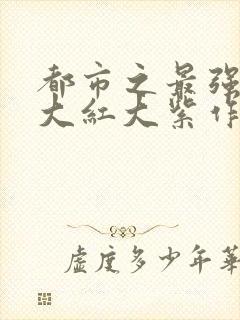 都市之最强
大紅大紫作
虛度多少年華